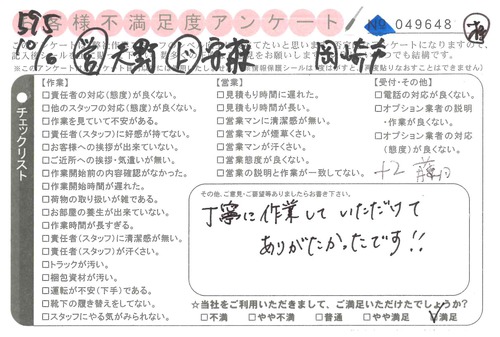 お客様不満足度アンケート
№ 049648
595
10/6
営 天野
岡崎市
チェックリスト
【作業】
□責任者の対応(態度)が良くない。
□他のスタッフの対応(態度)が良くない。
□作業を見ていて不安がある。
□責任者(スタッフ)に好感が持てない。
□お客様への挨拶が出来ていない。
□ご近所への挨拶・気遣いが無い。
□作業開始前の内容確認がなかった。
□作業開始時間が遅れた。
□荷物の取り扱いが雑である。
□お部屋の養生が出来ていない。
□作業時間が長すぎる。
□責任者(スタッフ)に清潔感が無い。
□責任者(スタッフ)が汗くさい。
□トラックが汚い。
□梱包資材が汚い。
□運転が不安(下手)である。
□靴下の履き替えをしてない。
□スタッフにやる気がみられない。
【営業】
□見積もり時間に遅れた。
□見積もり時間が長い。
□営業マンに清潔感が無い。
□営業マンが煙草くさい。
□営業マンが汗くさい。
□営業態度が良くない。
□営業の説明と作業が一致してない。
【受付・その他】
□電話の対応が良くない。
□オプション業者の説明
・作業が良くない。
□オプション業者の対応
(態度)が良くない。
その他、ご意見・ご要望等ありましたらお書き下さい。
丁寧に作業して いただけて
ありがたかったです!!
☆当社をご利用いただきまして、ご満足いただけたでしょうか?
□不満 □やや不満 □普通 □やや満足 ☑満足